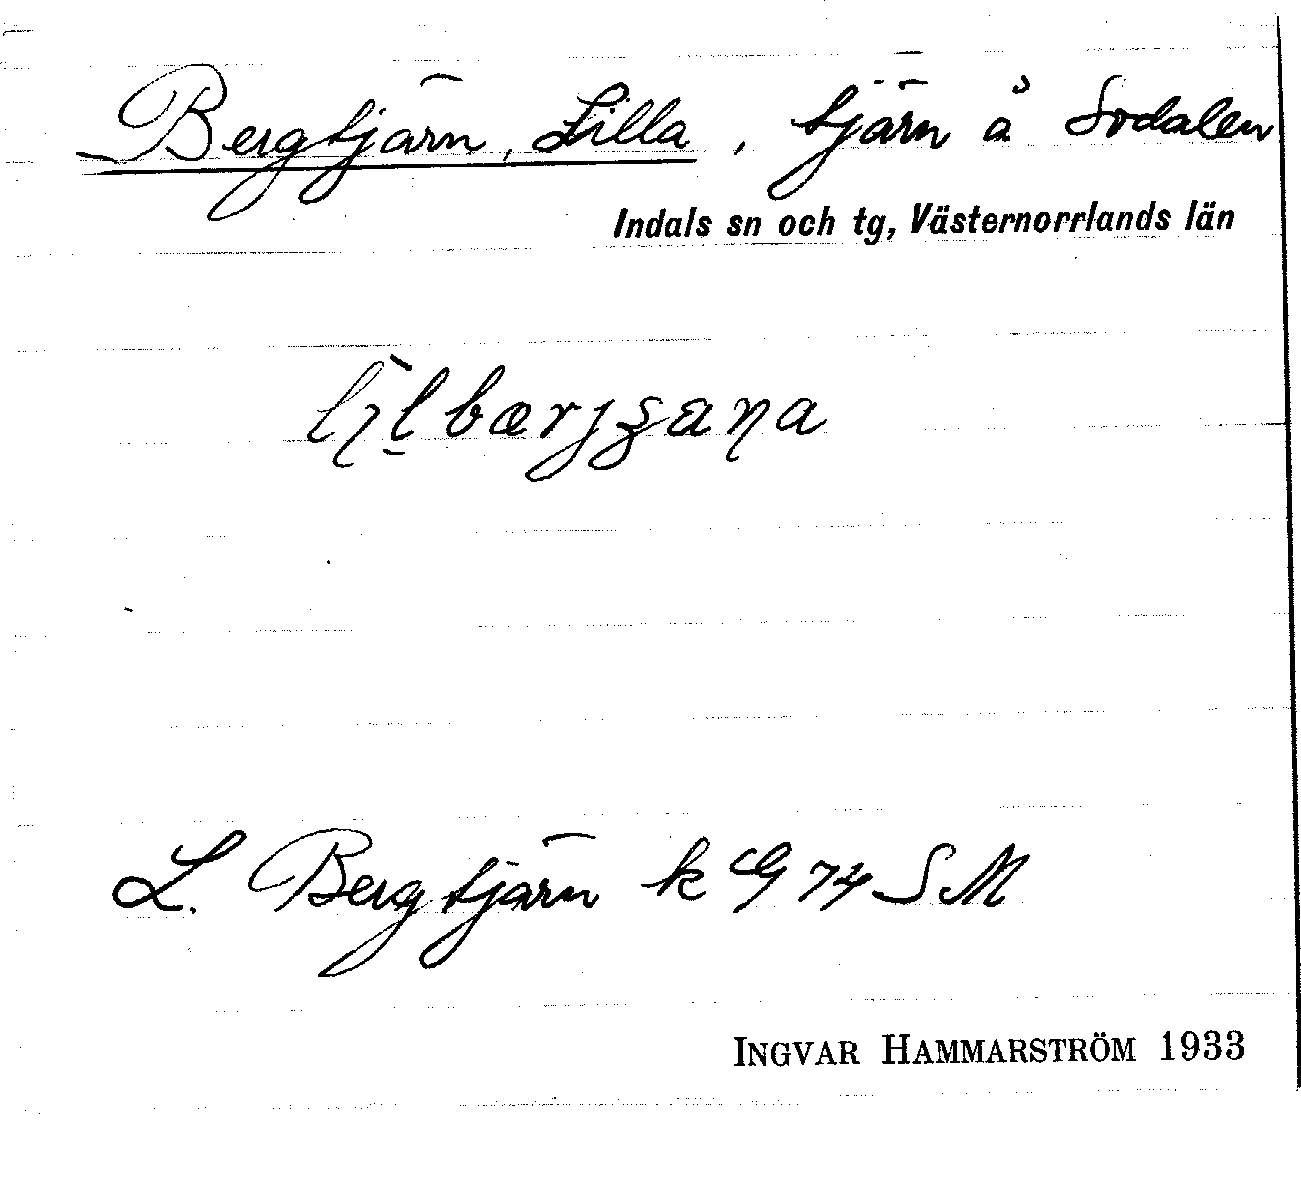 Bergtjärn, Lilla, tjärn å Sodalen
Indals sn och tg, Västernorrlands län
L. Bergtjärn k G 74 SM
INGVAR HAMMARSTRÖM 1933